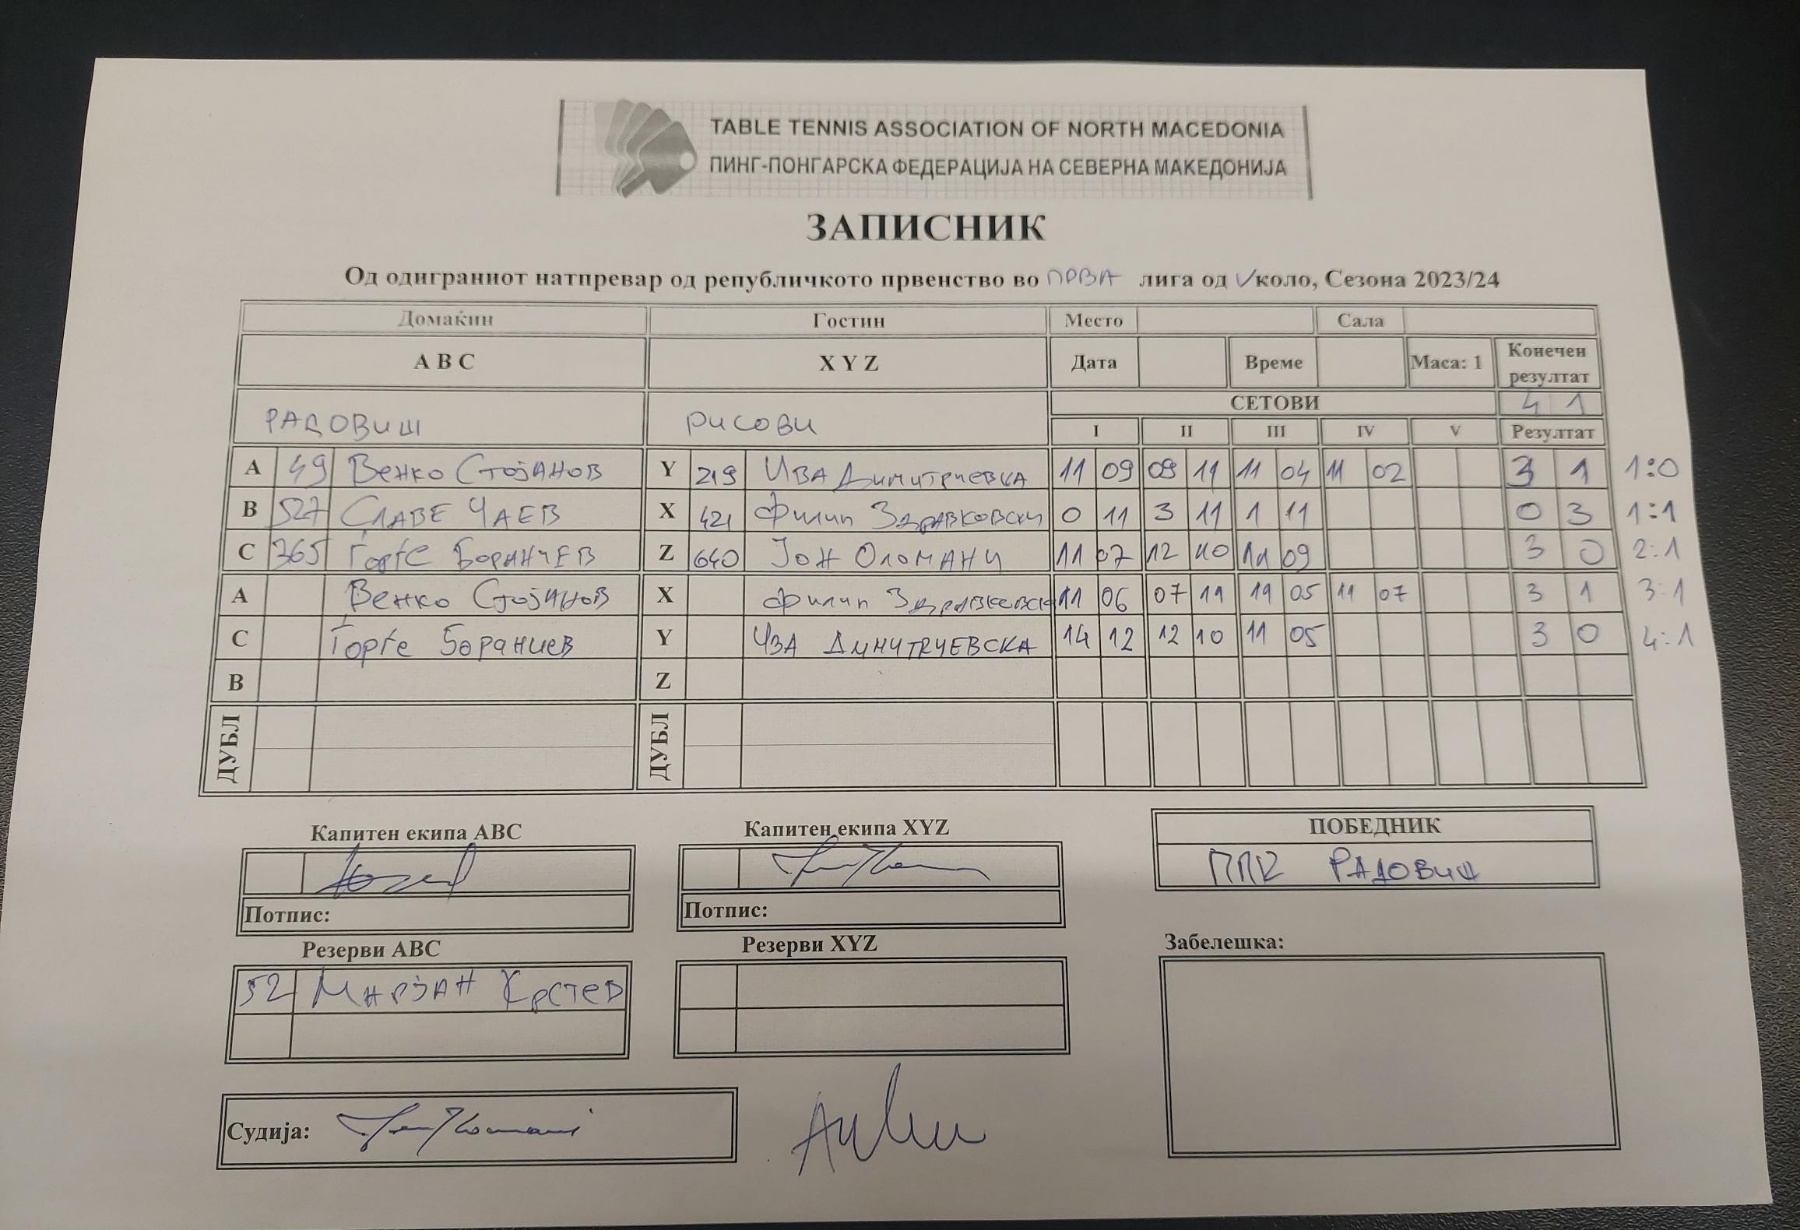 TABLE TENNIS ASSOCIATION OF NORTH MACEDONIA
ПИНГ-ПОНГАРСКА ФЕДЕРАЦИЈА НА СЕВЕРНА МАКЕДОНИЈА
ЗАПИСНИК
Од одиграниот натпревар од републичкото првенство во ПРВА лига од V коло, Сезона 2023/24
Домаќин Гостин Место Сала
A B C X Y Z Дата Време Маса: 1 Конечен резултат
СЕТОВИ 4 1
РАДОВИШ РИСОВИ I II III IV V Резултат
A 49 Венко Стојанов Y 219 Ива Димитриевка 11 09 09 11 11 04 11 02 3 1 1:0
B 527 Славе Чаев X 421 Филип Здравковски 0 11 3 11 1 11 0 3 1:1
C 365 Ѓорѓе Баранчев Z 640 Јон Оломани 11 07 12 10 11 09 3 0 2:1
A Венко Стојанов X Филип Здравковски 11 06 07 11 11 05 11 07 3 1 3:1
C Ѓорѓе Баранчев Y Ива Димитриевска 14 12 12 10 11 05 3 0 4:1
B Z
ДУБЛ ДУБЛ
Капитен екипа ABC Капитен екипа XYZ ПОБЕДНИК
ППК РАДОВИШ
Потпис: Потпис:
Резерви ABC Резерви XYZ Забелешка:
52 Марјан Крстев
Судија: